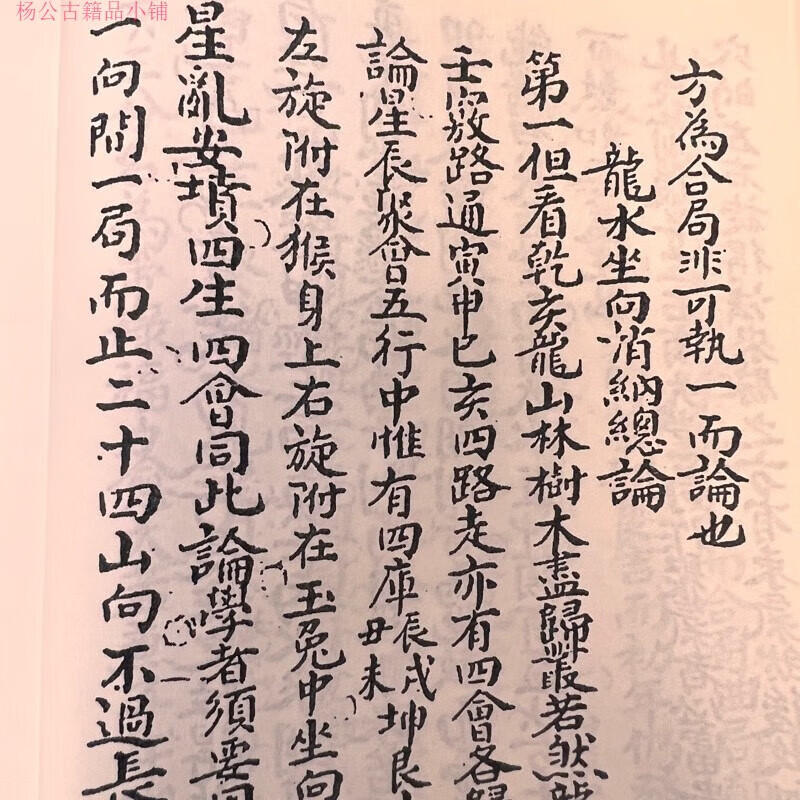 杨公古籍品小铺
方為合局非可執一而論也
龍水坐向消納總論
第一但看乾亥龍山林樹木盡歸叢若然龍
壬竅路通寅申巳亥四路走亦有四會各歸
論星辰聚會五行中惟有四庫辰戌丑未坤艮
左旋附在猴身上右旋附在玉兔中坐向
星亂安墳四生四會同此論學者須要
一向問一局而止二十四山向不過長